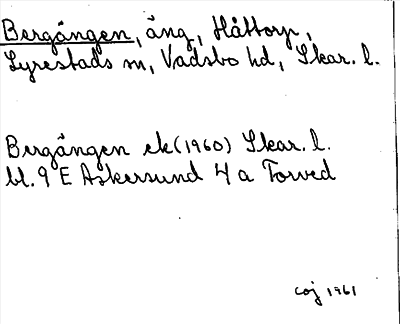 Bergången, äng, Håttorp,
Lyrestads sn, Vadsbo hd, Skar. l.
Bergången ek (1960) Skar. l.
bl. 9 E Askersund 4 a Torved
coj 1961